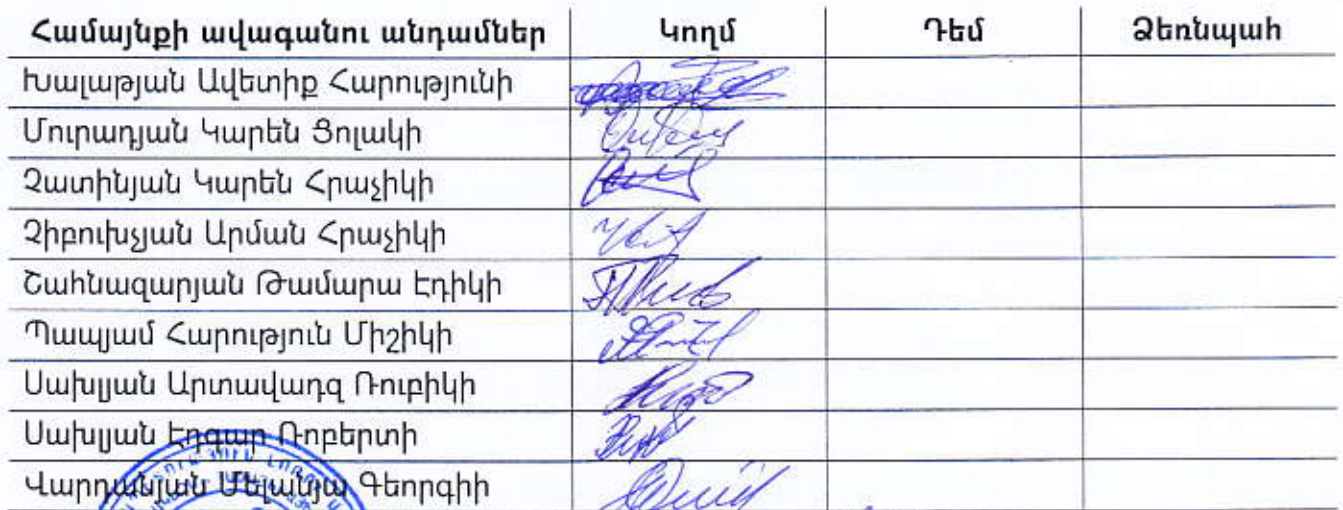 Համայնքի ավագանու անդամներ Կողմ Դեմ Ձեռնպահ
Խալաթյան Ավետիք Հարությունի
Մուրադյան Կարեն Ցոլակի
Չատինյան Կարեն Հրաչիկի
Չիբուխչյան Արման Հրաչիկի
Շահնազարյան Թամարա Էդիկի
Պապյամ Հարություն Միշիկի
Սախլյան Արտավադզ Ռուբիկի
Սախլյան Էդգար Ռոբերտի
Վարդանյան Մելանյա Գեորգիի